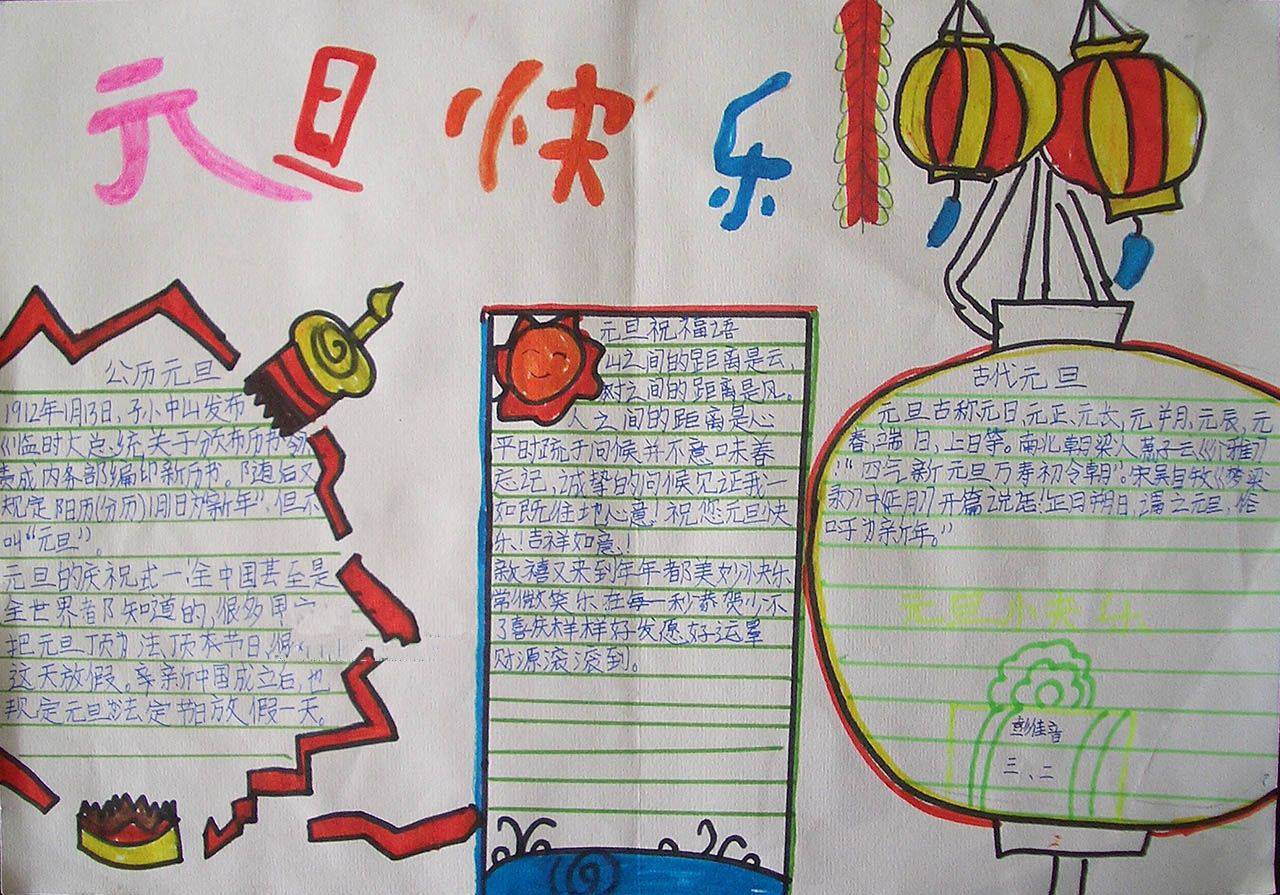 元旦快乐
公历元旦
1912年1月13日,孙中山发布
《临时大总统关于颁布历书令》
责成内务部编印新历书。随后又
规定阳历(公历)1月1日为"新年",但不
叫"元旦"。
元旦的庆祝式一:全中国甚至是
全世界者阝知道的,很多
把元旦
这天放假。新中国成立后,也
规定元旦为法定节日放假一天。
元旦祝福语
山之间的距离是云,
树之间的距离是风。
人之间的距离是心
平时疏于问候并不意味着
忘记,诚挚的问候见证我一
如既往地心意!祝您元旦快
乐!吉祥如意!
新禧又来到年年都美妙快乐
常微笑乐在每一秒恭贺少不
了喜庆样样好发愿好运罩
财源滚滚到。
古代元旦
元旦古称元日,元正、元长,元朔,元辰,元
春,端日,上日等。南北朝梁人萧子云《介雅》
"四气新元旦万寿初今朝"。宋吴自牧《梦粱
录》中《正月》开篇说语:"正日朔日,谓之元旦,俗
呼为新年。"
元旦小快乐
彭佳音
三、二